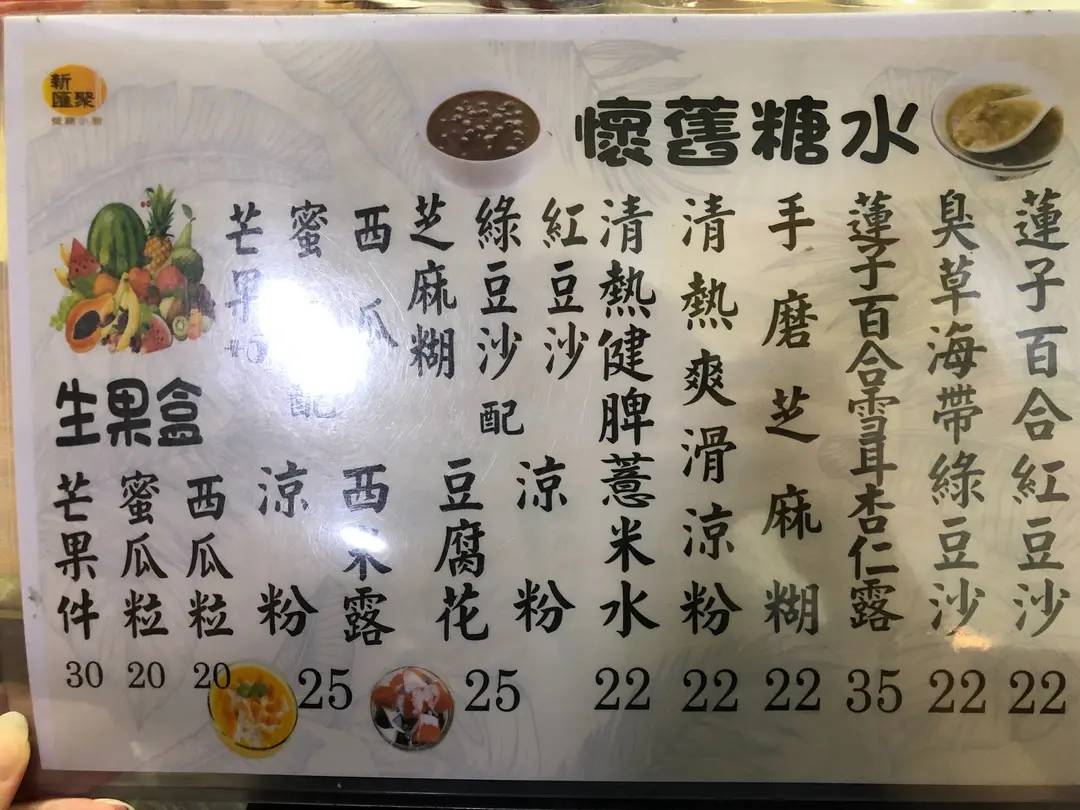 新匯聚
懷舊糖水
蓮子百合紅豆沙
22
臭草海帶綠豆沙
22
蓮子百合雪耳杏仁露
35
手磨芝麻糊
22
清熱爽滑涼粉
22
清熱健脾薏米水
22
紅豆沙
綠豆沙
芝麻糊
配
涼粉
豆腐花
25
西瓜
蜜
芒果
+5
配
西米露
涼粉
25
生果盒
西瓜粒
20
蜜瓜粒
20
芒果件
30